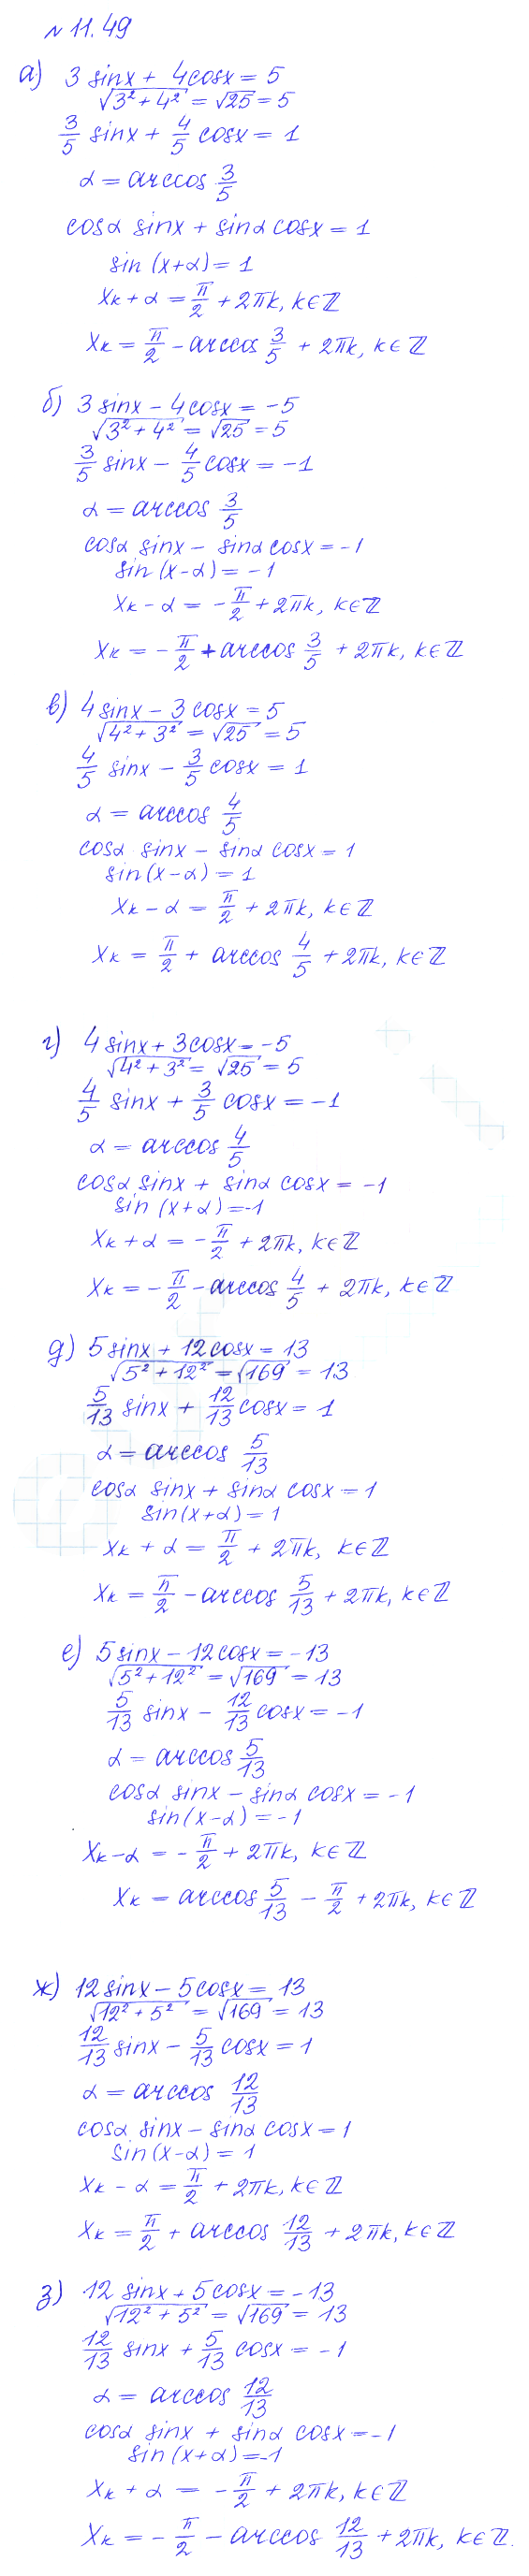 № 11.49
а) 3 sinx + 4cosx = 5
√(3² + 4²) = √25 = 5
3/5 sinx + 4/5 cosx = 1
α = arccos 3/5
cosα sinx + sinα cosx = 1
sin (x+α) = 1
xₖ + α = π/2 + 2πk, k∈ℤ
xₖ = π/2 - arccos 3/5 + 2πk, k∈ℤ
б) 3 sinx - 4cosx = -5
√(3² + 4²) = √25 = 5
3/5 sinx - 4/5 cosx = -1
α = arccos 3/5
cosα sinx - sinα cosx = -1
sin (x-α) = -1
xₖ - α = -π/2 + 2πk, k∈ℤ
xₖ = -π/2 + arccos 3/5 + 2πk, k∈ℤ
в) 4sinx - 3cosx = 5
√(4² + 3²) = √25 = 5
4/5 sinx - 3/5 cosx = 1
α = arccos 4/5
cosα sinx - sinα cosx = 1
sin(x-α) = 1
xₖ - α = π/2 + 2πk, k∈ℤ
xₖ = π/2 + arccos 4/5 + 2πk, k∈ℤ
г) 4 sinx + 3cosx = -5
√(4² + 3²) = √25 = 5
4/5 sinx + 3/5 cosx = -1
α = arccos 4/5
cosα sinx + sinα cosx = -1
sin (x+α) = -1
xₖ + α = -π/2 + 2πk, k∈ℤ
xₖ = -π/2 - arccos 4/5 + 2πk, k∈ℤ
д) 5sinx + 12cosx = 13
√(5² + 12²) = √169 = 13
5/13 sinx + 12/13 cosx = 1
α = arccos 5/13
cosα sinx + sinα cosx = 1
sin(x+α) = 1
xₖ + α = π/2 + 2πk, k∈ℤ
xₖ = π/2 - arccos 5/13 + 2πk, k∈ℤ
е) 5sinx - 12cosx = -13
√(5² + 12²) = √169 = 13
5/13 sinx - 12/13 cosx = -1
α = arccos 5/13
cosα sinx - sinα cosx = -1
sin(x-α) = -1
xₖ - α = -π/2 + 2πk, k∈ℤ
xₖ = arccos 5/13 - π/2 + 2πk, k∈ℤ
ж) 12sinx - 5cosx = 13
√(12² + 5²) = √169 = 13
12/13 sinx - 5/13 cosx = 1
α = arccos 12/13
cosα sinx - sinα cosx = 1
sin(x-α) = 1
xₖ - α = π/2 + 2πk, k∈ℤ
xₖ = π/2 + arccos 12/13 + 2πk, k∈ℤ
з) 12 sinx + 5cosx = -13
√(12² + 5²) = √169 = 13
12/13 sinx + 5/13 cosx = -1
α = arccos 12/13
cosα sinx + sinα cosx = -1
sin(x+α) = -1
xₖ + α = -π/2 + 2πk, k∈ℤ
xₖ = -π/2 - arccos 12/13 + 2πk, k∈ℤ